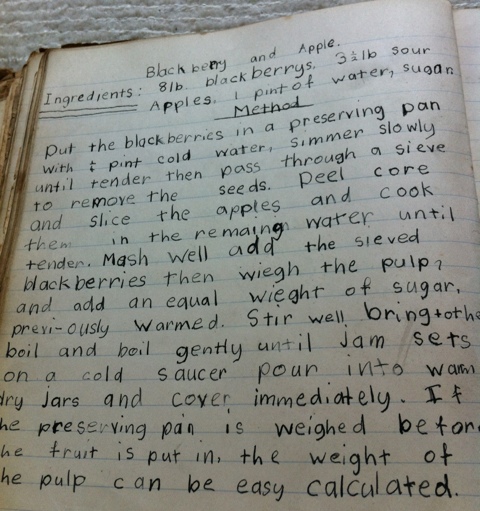 Blackberry and Apple.
Ingredients: 8lb. blackberrys. 3½lb sour
Apples. 1 pint of water, sugar
Method
Put the blackberries in a preserving pan
with ½ pint cold water, simmer slowly
until tender then pass through a sieve
to remove the seeds. Peel core
and slice the apples and cook
them in the remaing water until
tender. Mash well add the sieved
blackberries then wiegh the pulp,
and add an equal wieght of sugar,
previ-ously warmed. Stir well, bring to the
boil and boil gently until Jam sets
on a cold saucer pour into warm
dry jars and cover immediately. If
he preserving pan is weighed befor
he fruit is put in, the weight of
he pulp can be easy calculated.